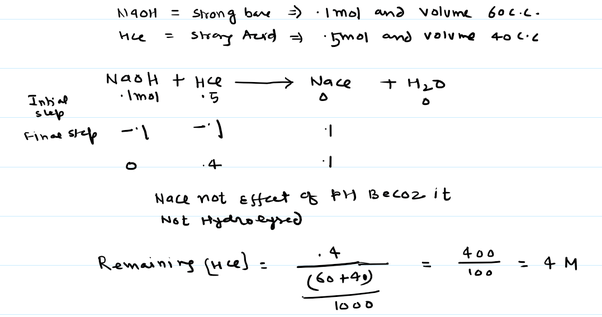 NaOH = strong base ⇒ .1mol and volume 60c.c.
Hce = strong Acid ⇒ .5mol and volume 40c.c
NaOH + Hce ⟶ Nace + H₂O
Intial step .1mol .5 0 0
Final step -.1 -.1 .1
0 .4 .1
Nace not effect of PH Becoz it
Not Hydrolysed
Remaining [Hce] = .4 / ((60+40) / 1000) = 400/100 = 4 M